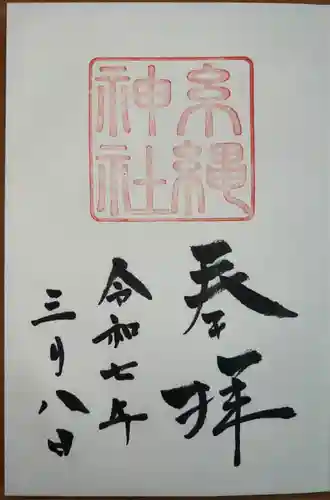 糸縄
神社
奉拝
令和七年
三月八日